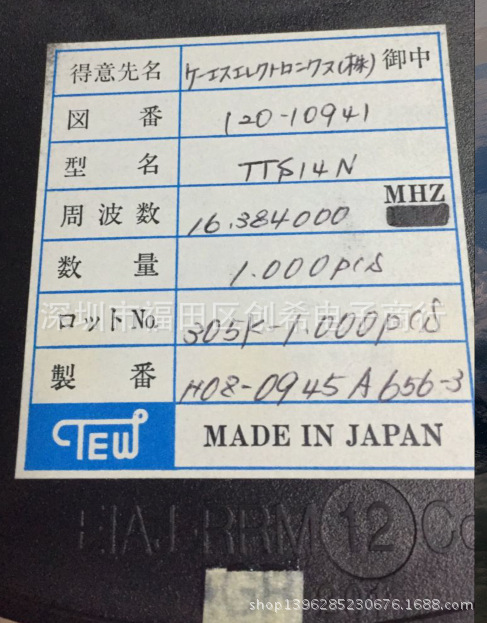 得意先名 ケーエスエレクトロニクス(株) 御中
図番 120-10941
型名 TTS14N
周波数 16.384000 MHZ
数量 1.000pcs
深圳市福田区创希电子商行
ロットNo. 305K-1.000pcs
製番 H08-0945A656-3
TEW MADE IN JAPAN
EIAJ-RRM 12 Co
shop1396285230676.1688.com